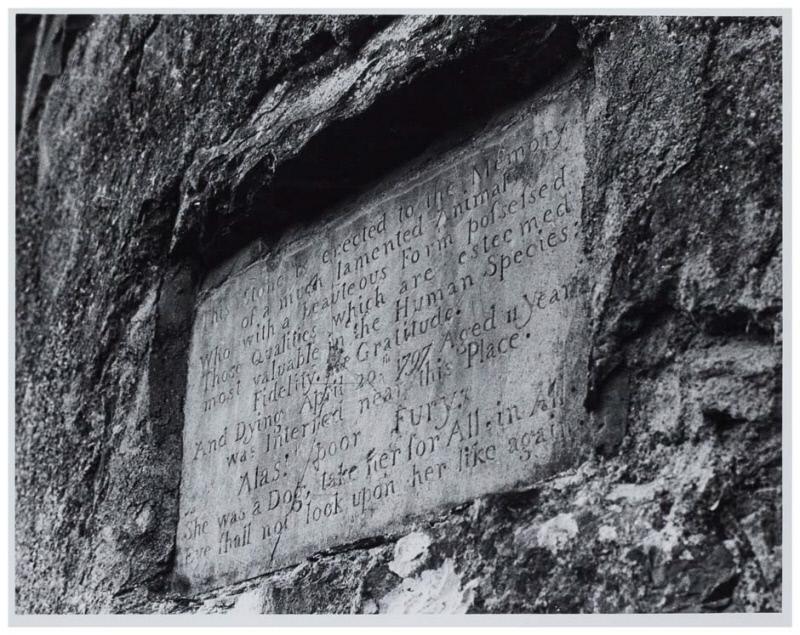 This Stone is erected to the Memory
of a much lamented Animal
Who with a beauteous Form poſseſsed
Those Qualities which are esteemed
most valuable in the Human Species:
Fidelity & Gratitude.
And Dying April 20th 1797 Aged 11 years
was Interred near this Place.
Alas! poor Fury,
She was a Dog, take her for All in All
Eye ſhall not look upon her like again.